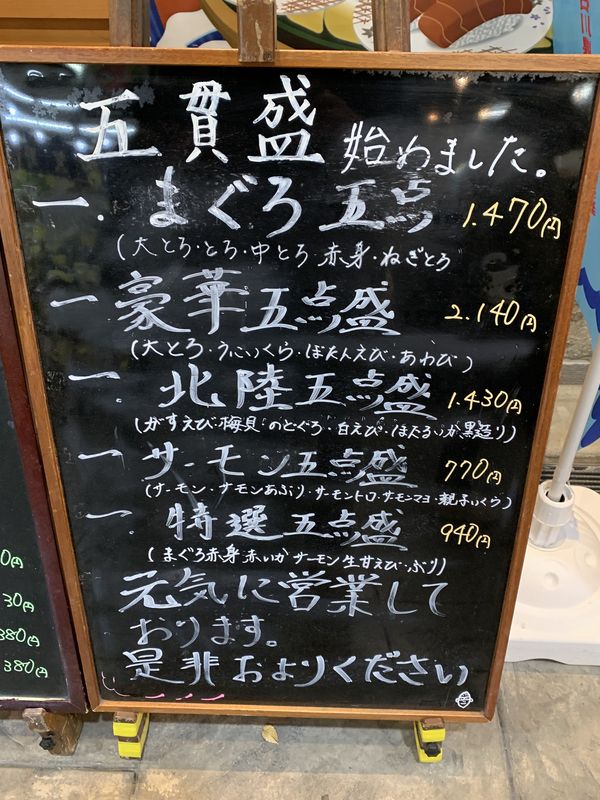 五貫盛 始めました。
一. まぐろ五点 1.470円
(大とろ・とろ・中とろ 赤身・ねぎとろ
一 豪華五点盛 2.140円
(大とろ・うに・いくら・ぼたんえび・あわび)
一. 北陸五点盛 1.430円
(がすえび・梅貝・のどぐろ・白えび・ほたるいか黒造り)
一. サーモン五点盛 770円
(サーモン・サーモンあぶり・サーモントロ・サーモンマヨ・親子いくら)
一. 特選五点盛 940円
(まぐろ赤身 赤いか サーモン 生甘えび・ぶり)
元気に営業して
おります。
是非およりください
0円
30円
380円
380円